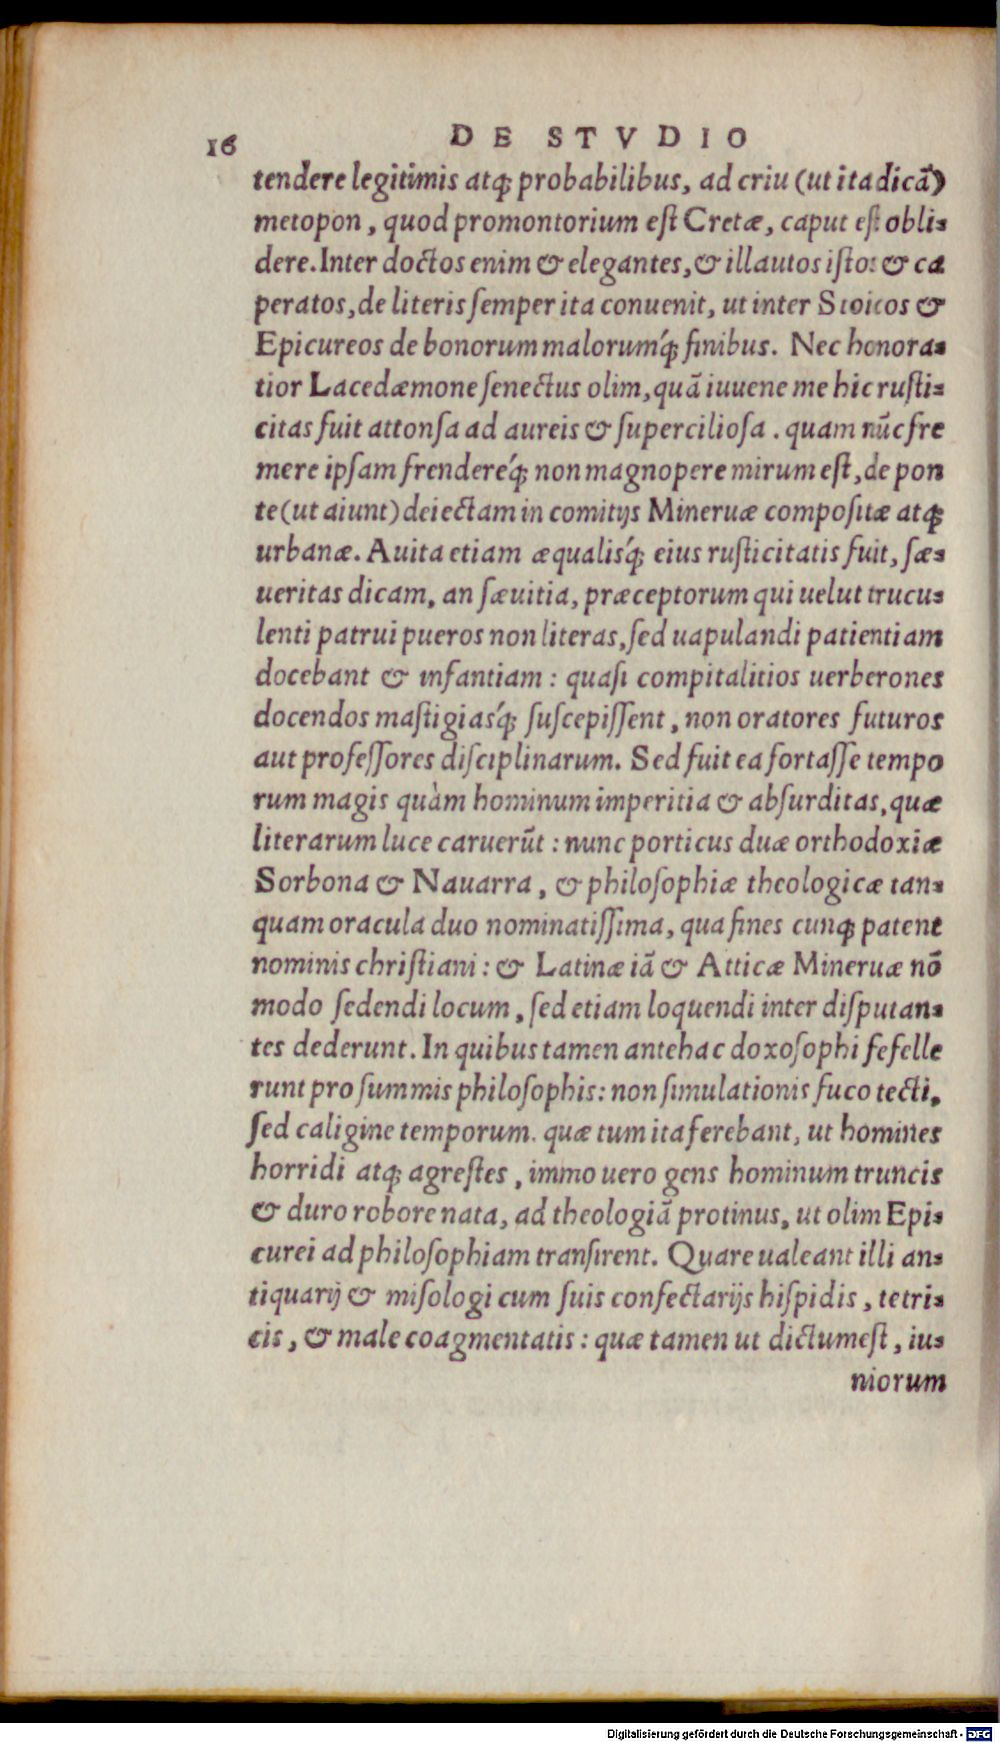 16 DE STVDIO
tendere legitimis atq; probabilibus, ad criu (ut ita dicā)
metopon, quod promontorium eſt Cretæ, caput eſt obli-
dere. Inter doctos enim & elegantes, & illautos iſtos & ca
peratos, de literis ſemper ita conuenit, ut inter Stoicos &
Epicureos de bonorum malorumq́; finibus. Nec honora-
tior Lacedæmone ſenectus olim, quā iuuene me hic ruſti-
citas fuit attonſa ad aureis & ſuperciliosa. quam nūc fre
mere ipſam frendereq́; non magnopere mirum eſt, de pon
te (ut aiunt) deiectam in comitijs Mineruæ compoſitæ atq;
urbanæ. Auita etiam æqualisq́; eius ruſticitatis fuit, ſæ-
ueritas dicam, an ſæuitia, præceptorum qui uelut trucu-
lenti patrui pueros non literas, ſed uapulandi patientiam
docebant & infantiam: quaſi compitalitios uerberones
docendos maſtigiasq́; ſuſcepiſſent, non oratores futuros
aut profeſſores diſciplinarum. Sed fuit ea fortaſſe tempo
rum magis quàm hominum imperitia & abſurditas, quæ
literarum luce caruerūt: nunc porticus duæ orthodoxiæ
Sorbona & Nauarra, & philoſophiæ theologicæ tan-
quam oracula duo nominatiſſima, qua fines cunq; patent
nominis chriſtiani: & Latinæ iā & Atticæ Mineruæ nō
modo ſedendi locum, ſed etiam loquendi inter diſputan-
tes dederunt. In quibus tamen antehac doxoſophi fefelle
runt pro ſummis philoſophis: non ſimulationis fuco tecti,
ſed caligine temporum. quæ tum ita ferebant, ut homines
horridi atq; agreſtes, immo uero gens hominum truncis
& duro robore nata, ad theologiā protinus, ut olim Epi-
curei ad philoſophiam tranſirent. Quare ualeant illi an-
tiquarij & miſologi cum ſuis confectarijs hiſpidis, tetri-
cis, & male coagmentatis: quæ tamen ut dictum eſt, iu-
niorum
Digitalisierung gefördert durch die Deutsche Forschungsgemeinschaft - DFG